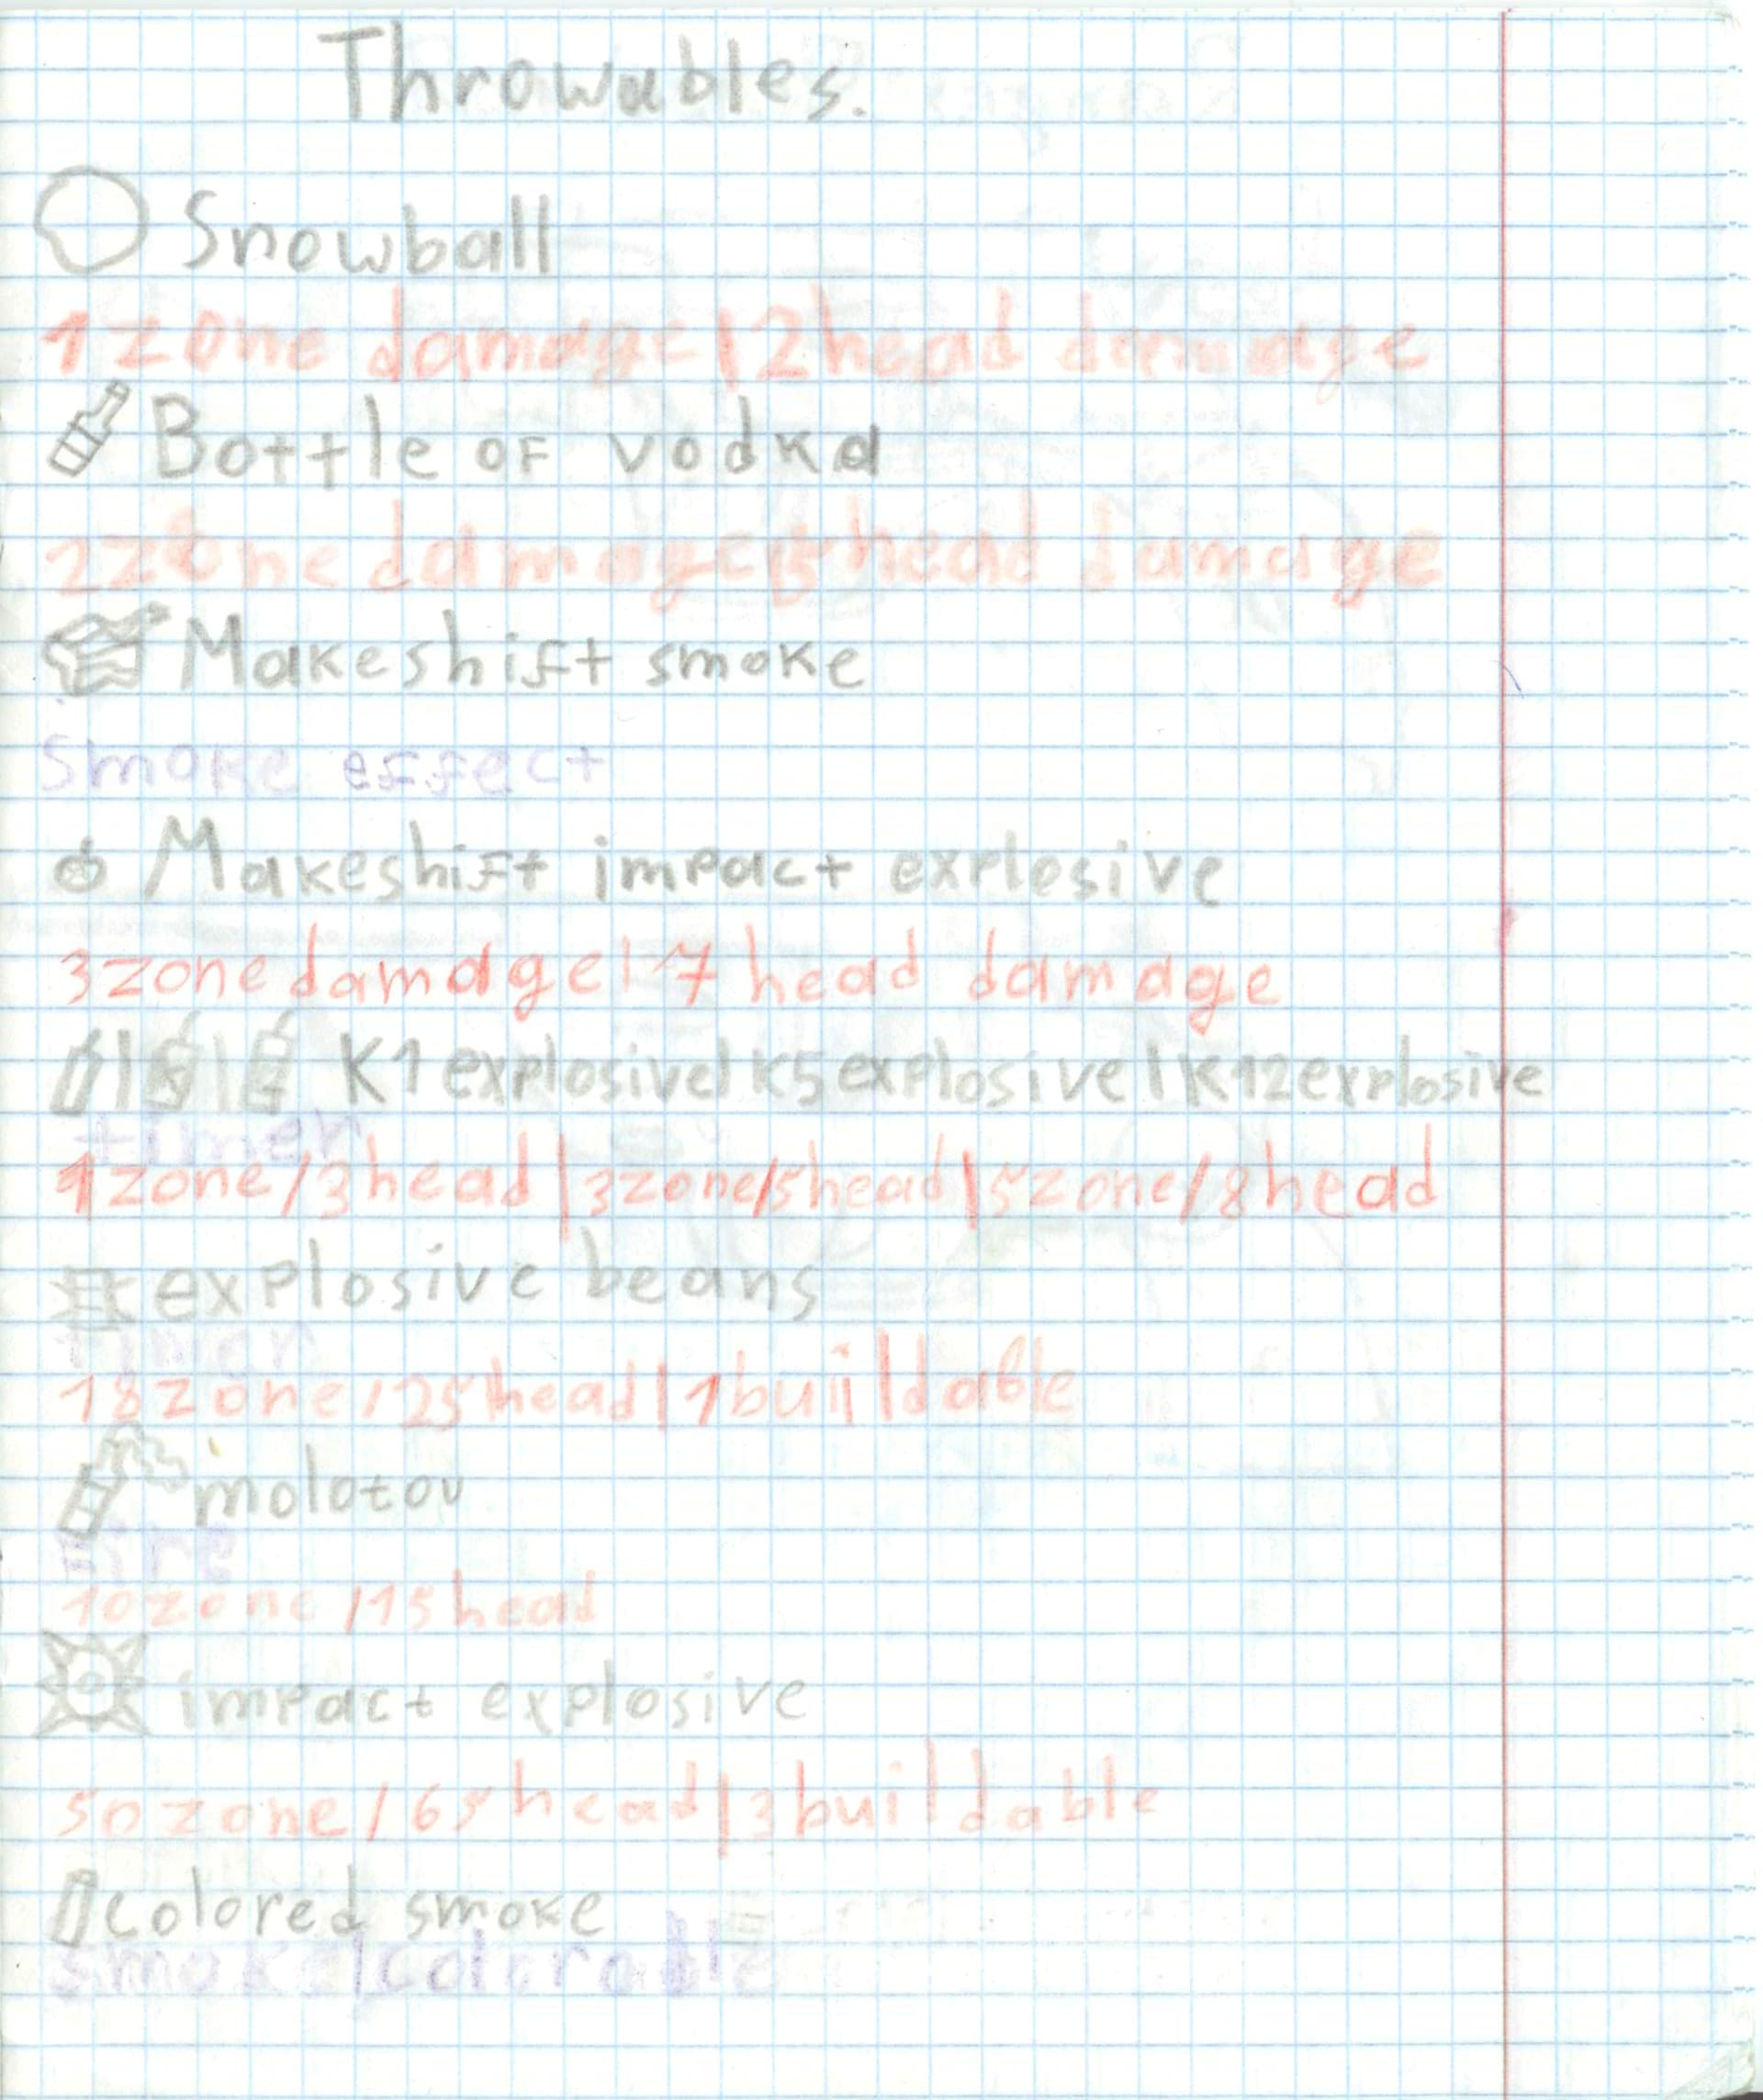 Throwables.
Snowball
1 zone damage | 2 head damage
Bottle of vodka
2 zone damage | 5 head damage
Makeshift smoke
Smoke effect
Makeshift impact explesive
3 zone damage | 7 head damage
K1 explosive | K5 explosive | K12 explosive
timer
1 zone / 3 head | 3 zone / 5 head | 5 zone / 8 head
explosive beans
timer
18 zone / 25 head | 1 buildable
molotov
Fire
10 zone / 15 head
impact explosive
50 zone / 65 head | 3 buildable
colored smoke
smoke | colorable